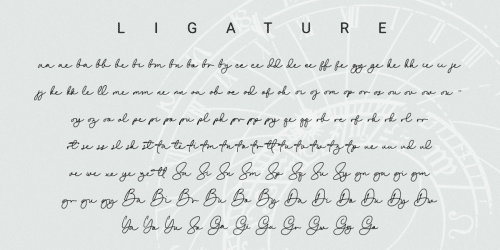 LIGATURE
aa ae ba bb be bi bm bn bo br by ce cc dd de ee ff fe gg ge he hh ie ii je
jj ke kk le ll me mm ne nn on ob oc od of oh oi oj om op or os ou ov ow ox
oy oz oa ol pe pi po pu pl ph pr pp py qe qq rb re rf rh rk rl rr
rt se ss sl sh st ta te ti tm tn to tr tt tu tv tw ty ue uu ud ul
ve we xe ye ze tl Sa Si Su Sm So Sq Sr Sy gn ga gi gm
gr gu gy Ba Bi Br Bu Bo By Da Di Do Du Dy Dw
Ya Yo Yu So Ga Gi Gu Gr Gw Gy Go